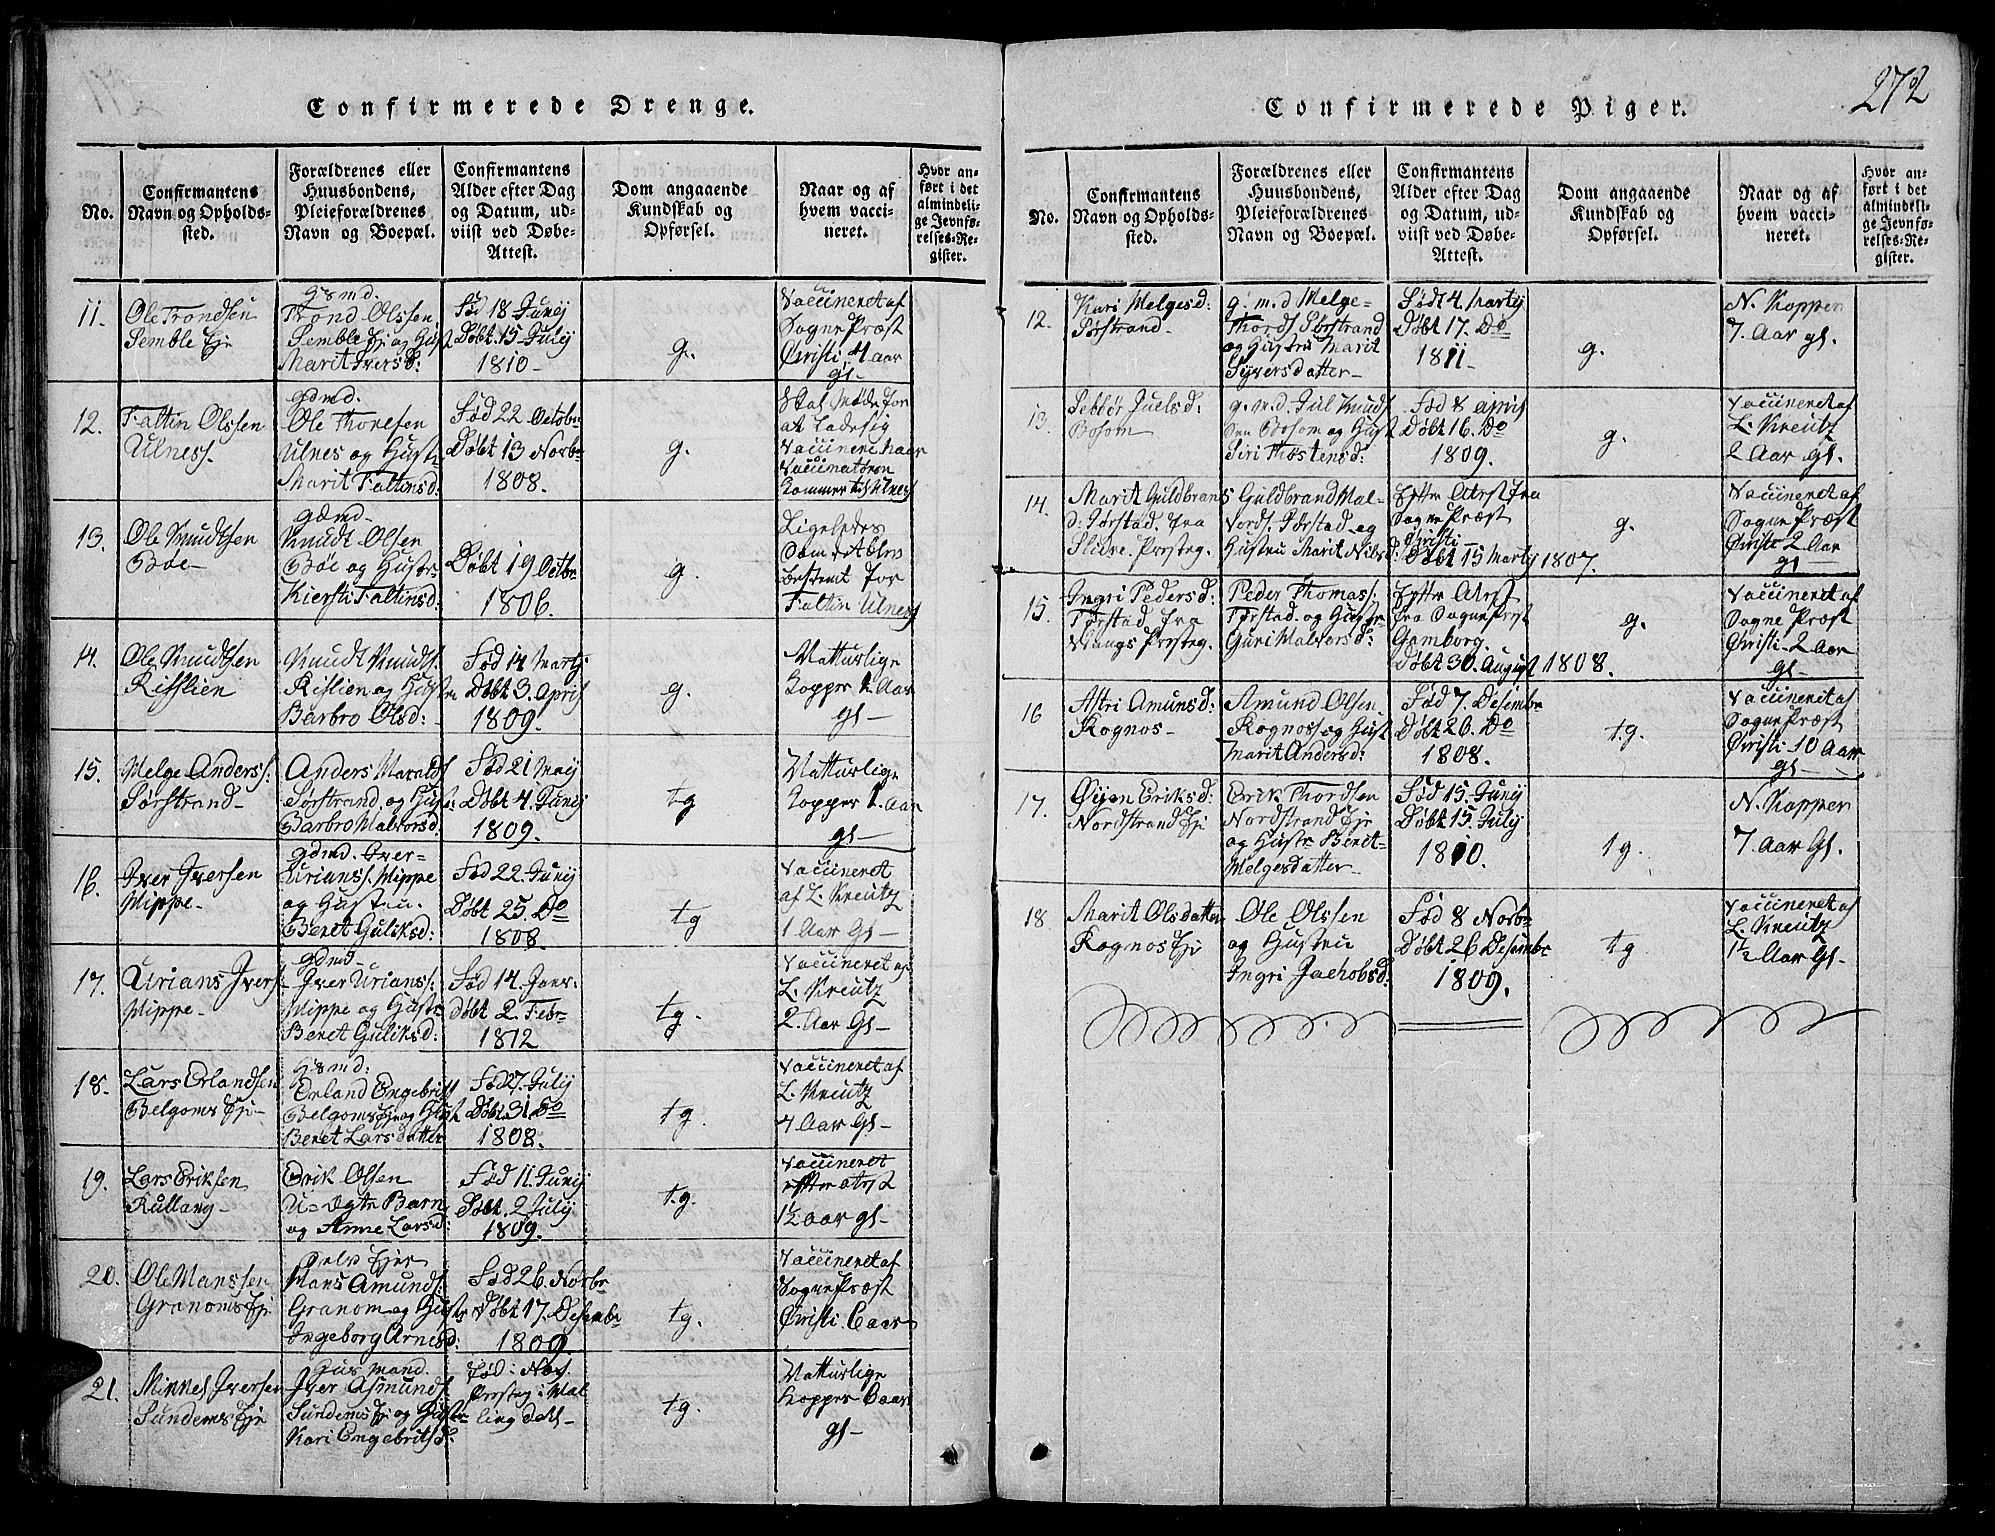 272
Confirmerede Drenge.
No.
Confirmantens
Navn og Opholds-
sted.
Forældrenes eller
Huusbondens,
Pleieforældrenes
Navn og Boepæl.
Confirmantens
Alder efter Dag
og Datum, ud-
viist ved Døbe-
Attest.
Dom angaaende
Kundskab og
Opførsel.
Naar og af
hvem vacci-
neret.
Hvor an-
ført i det
almindeli-
ge Jevnfø-
relses-Re-
gister.
11.
Ole Trondsen
Semble Eje
Trond Olssen
Semble Eje og Hust
Marit Iversd:
Fød 18 Junij
Døbt. 15 Julij
1810-
g.
Vaccineret af
Sogne Præst
Christi 4 aar
gl-
12.
Faltin Olssen
Ulness.
gdmd.
Ole Thoresen
Ulnes og Hust-
Marit Faltinsd:
Fød 22 Octobr
Døbt 13 Norbr
1808.
g.
Skal Møde for
at Lade sig
Vaccinere naar
Vaccinatøren
kommer til Ulness
13.
Ole Knudtsen
Bøe-
Knudt Olsen
Bøe og Hustr-
Kiersti Faltinsd:
Døbt 19 Octbr
1806.
g.
Ligeledes
bestemt for
Faltin Ulness
14.
Ole Knudtsen
Risslien
Knudt Knudts.
Rislien og Hust
Barbro Olsd:
Fød 14 Martij
Døbt 3. April
1809.
g.
Natturlige
Kopper 1. Aar
gl-
15.
Helge Anderss:
Sørstrand-
Anders Haralds
Sørstrand og Hust:
Barbro Halvorsd:
Fød 21 Maij
Døbt 4. Junij
1809.
tg
Natturlige
Kopper 1. Aar
gl-
16.
Iver Iversen
Hippe-
gdmd. Iver-
Urianss. Hippe
og Hustru.
Beret Guliksd:
Fød 22. Junij
Døbt 25. Do
1808.
tg
Vaccineret
af L. Kreutz
1 Aar Gl-
17.
Urians Ivers-
Hippe-
gdmd-
Iver Urianss:
Hippe og Hustr
Beret Guliksd:
Fød 14. Janr-
Døbt 2. Febr
1812
tg.
Vaccineret af
L. Kreutz
2. Aar Gl-
18.
Lars Erlandsen
Belgoms Eje-
Hsmd:
Erland Engebrits
Belgoms Eje og Hust
Beret Larsdatter
Fød 27. Julij
Døbt. 31. Do
1808.
tg.
Vaccineret af
L. Kreutz
4 Aar Gl-
19.
Lars Eriksen
Rullang-
Erik Olsen
U-Ægte Barn
og Anne Larsd:
Fød 11. Junij
Døbt. 2 Julij
1809.
t.g.
Vaccineret
efter atest
1½ aar gl-
20.
Ole Hanssen
Granoms Eje
Selv Ejer
Hans Amunds:
Granom og Hustr
Ingeborg Arnesd:
Fød 26. Norbr
Døbt 17. Desembr
1809.
tg.
Vaccineret af
Sogne Præst
Christi 6 aar
21.
Iversen
Sundems Eje
Husmand.
Iver Asmunds.
Sundems Eje og Hustr
Kari Engebritsd:
Fød i Næs
Præsteg i Hal
lingdahl-
tg.
Natturlige
Kopper 6 aar
gl-
Confirmerede Piger.
No.
Confirmantens
Navn og Opholds-
sted.
Forældrenes eller
Huusbondens,
Pleieforældrenes
Navn og Boepæl.
Confirmantens
Alder efter Dag
og Datum, ud-
viist ved Døbe-
Attest.
Dom angaaende
Kundskab og
Opførsel.
Naar og af
hvem vacci-
neret.
Hvor an-
ført i det
almindeli-
ge Jevnfø-
relses-Re-
gister.
12.
Kari Helgesd:
Sørstrand-
g. m. d Helge-
Thords. Sørstrand
og Hustru Marit
Syversdatter-
Født 4. Martij
Døbt 17. Do
1811-
g.
N. Kopper
7. Aar gl.
13.
Juelsd:
Bosom
g. m. d Jul Knuds
sen Bosom og Hust
Siri Thostensd:
Fød 8 April
Døbt 16. Do
1809.
g.
Vaccineret af
L. Kreutz
2 Aar gl.
14.
Marit Guldbrans
d: Førstad. fra
Slidre. Presteg.
Guldbrand Hal-
vords. Førstad og
Hustru Marit Nilsd:
Efter Atest fra
Sogne Præst
Christi-
Døbt 15 Martij 1807.
g.
Vaccineret af
Sogne Præst
Christi 2 Aar
gl-
15.
Ingri Pedersd:
Førstad fra
Vangs Presteg.
Peder Thomas:
Førstad. og Hustr-
Guri Halvorsd:
Efter Atest
fra Sogne Prest
Gamborg.
Døbt 30. August 1808.
g.
Vaccineret af
Sogne Præst
Christi-2 Aar
gl-
16
Astri Amunsd:
Rognos-
Amund Olsen
Rognoss og Hust
Marit Andersd:
Fød 7. Desembr
Døbt 26. Do
1808.
tg.
Vaccineret af
Sogne Præst
Christi 10 Aar
gl-
17.
Øijen Eriksd:
Nordstrand Eje
Erik Thordsen
Nordstrand Eje
og Hustr Beret-
Helgesdatter-
Fød 15. Junij
Døbt 15. Julij
1810.
tg.
N. Kopper
7. Aar Gl.
18
Marit Olsdatter
Rognos Eje
Ole Olssen
og Hustru
Ingri Jachobsd:
Fød 8 Norbr
Døbt 26 Desembr
1809.
tg
Vaccineret af
L. Kreutz
1½ Aar Gl-